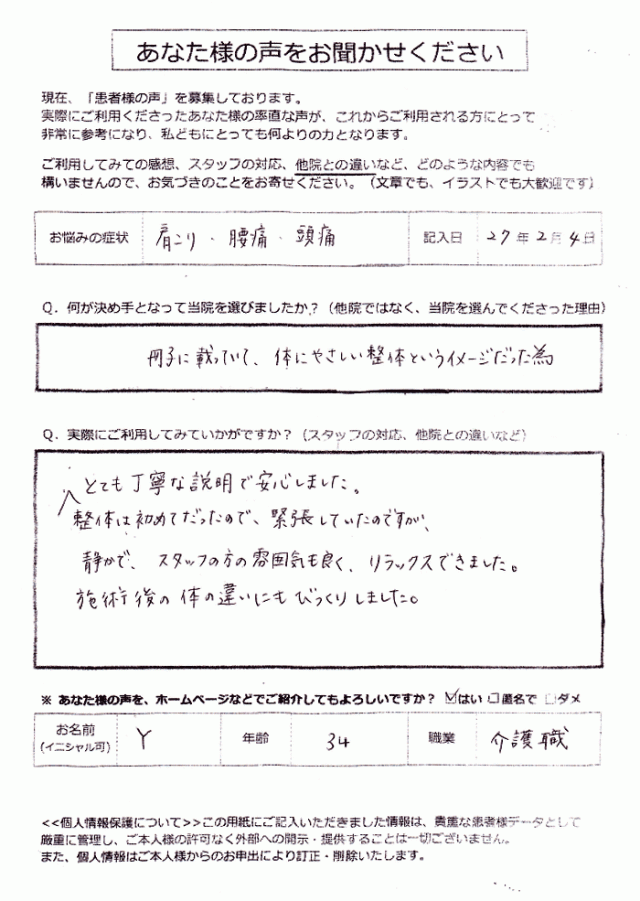 あなた様の声をお聞かせください
現在、「患者様の声」を募集しております。
実際にご利用くださったあなた様の率直な声が、これからご利用される方にとって
非常に参考になり、私どもにとっても何よりの力となります。
ご利用してみての感想、スタッフの対応、他院との違いなど、どのような内容でも
構いませんので、お気づきのことをお寄せください。（文章でも、イラストでも大歓迎です）
お悩みの症状 肩こり・腰痛・頭痛 記入日 27年2月4日
Q．何が決め手となって当院を選びましたか？（他院ではなく、当院を選んでくださった理由）
冊子に載っていて、体にやさしい整体というイメージだった為
Q．実際にご利用してみていかがですか？（スタッフの対応、他院との違いなど）
とても丁寧な説明で安心しました。
整体は初めてだったので、緊張していたのですが、
静かで、スタッフの方の雰囲気も良く、リラックスできました。
施術後の体の違いにもびっくりしました。
※ あなた様の声を、ホームページなどでご紹介してもよろしいですか？ ☑はい □匿名で □ダメ
お名前
(イニシャル可) Y 年齢 34 職業 介護職
<<個人情報保護について>>この用紙にご記入いただきました情報は、貴重な患者様データとして
厳重に管理し、ご本人様の許可なく外部への開示・提供することは一切ございません。
また、個人情報はご本人様からのお申出により訂正・削除いたします。